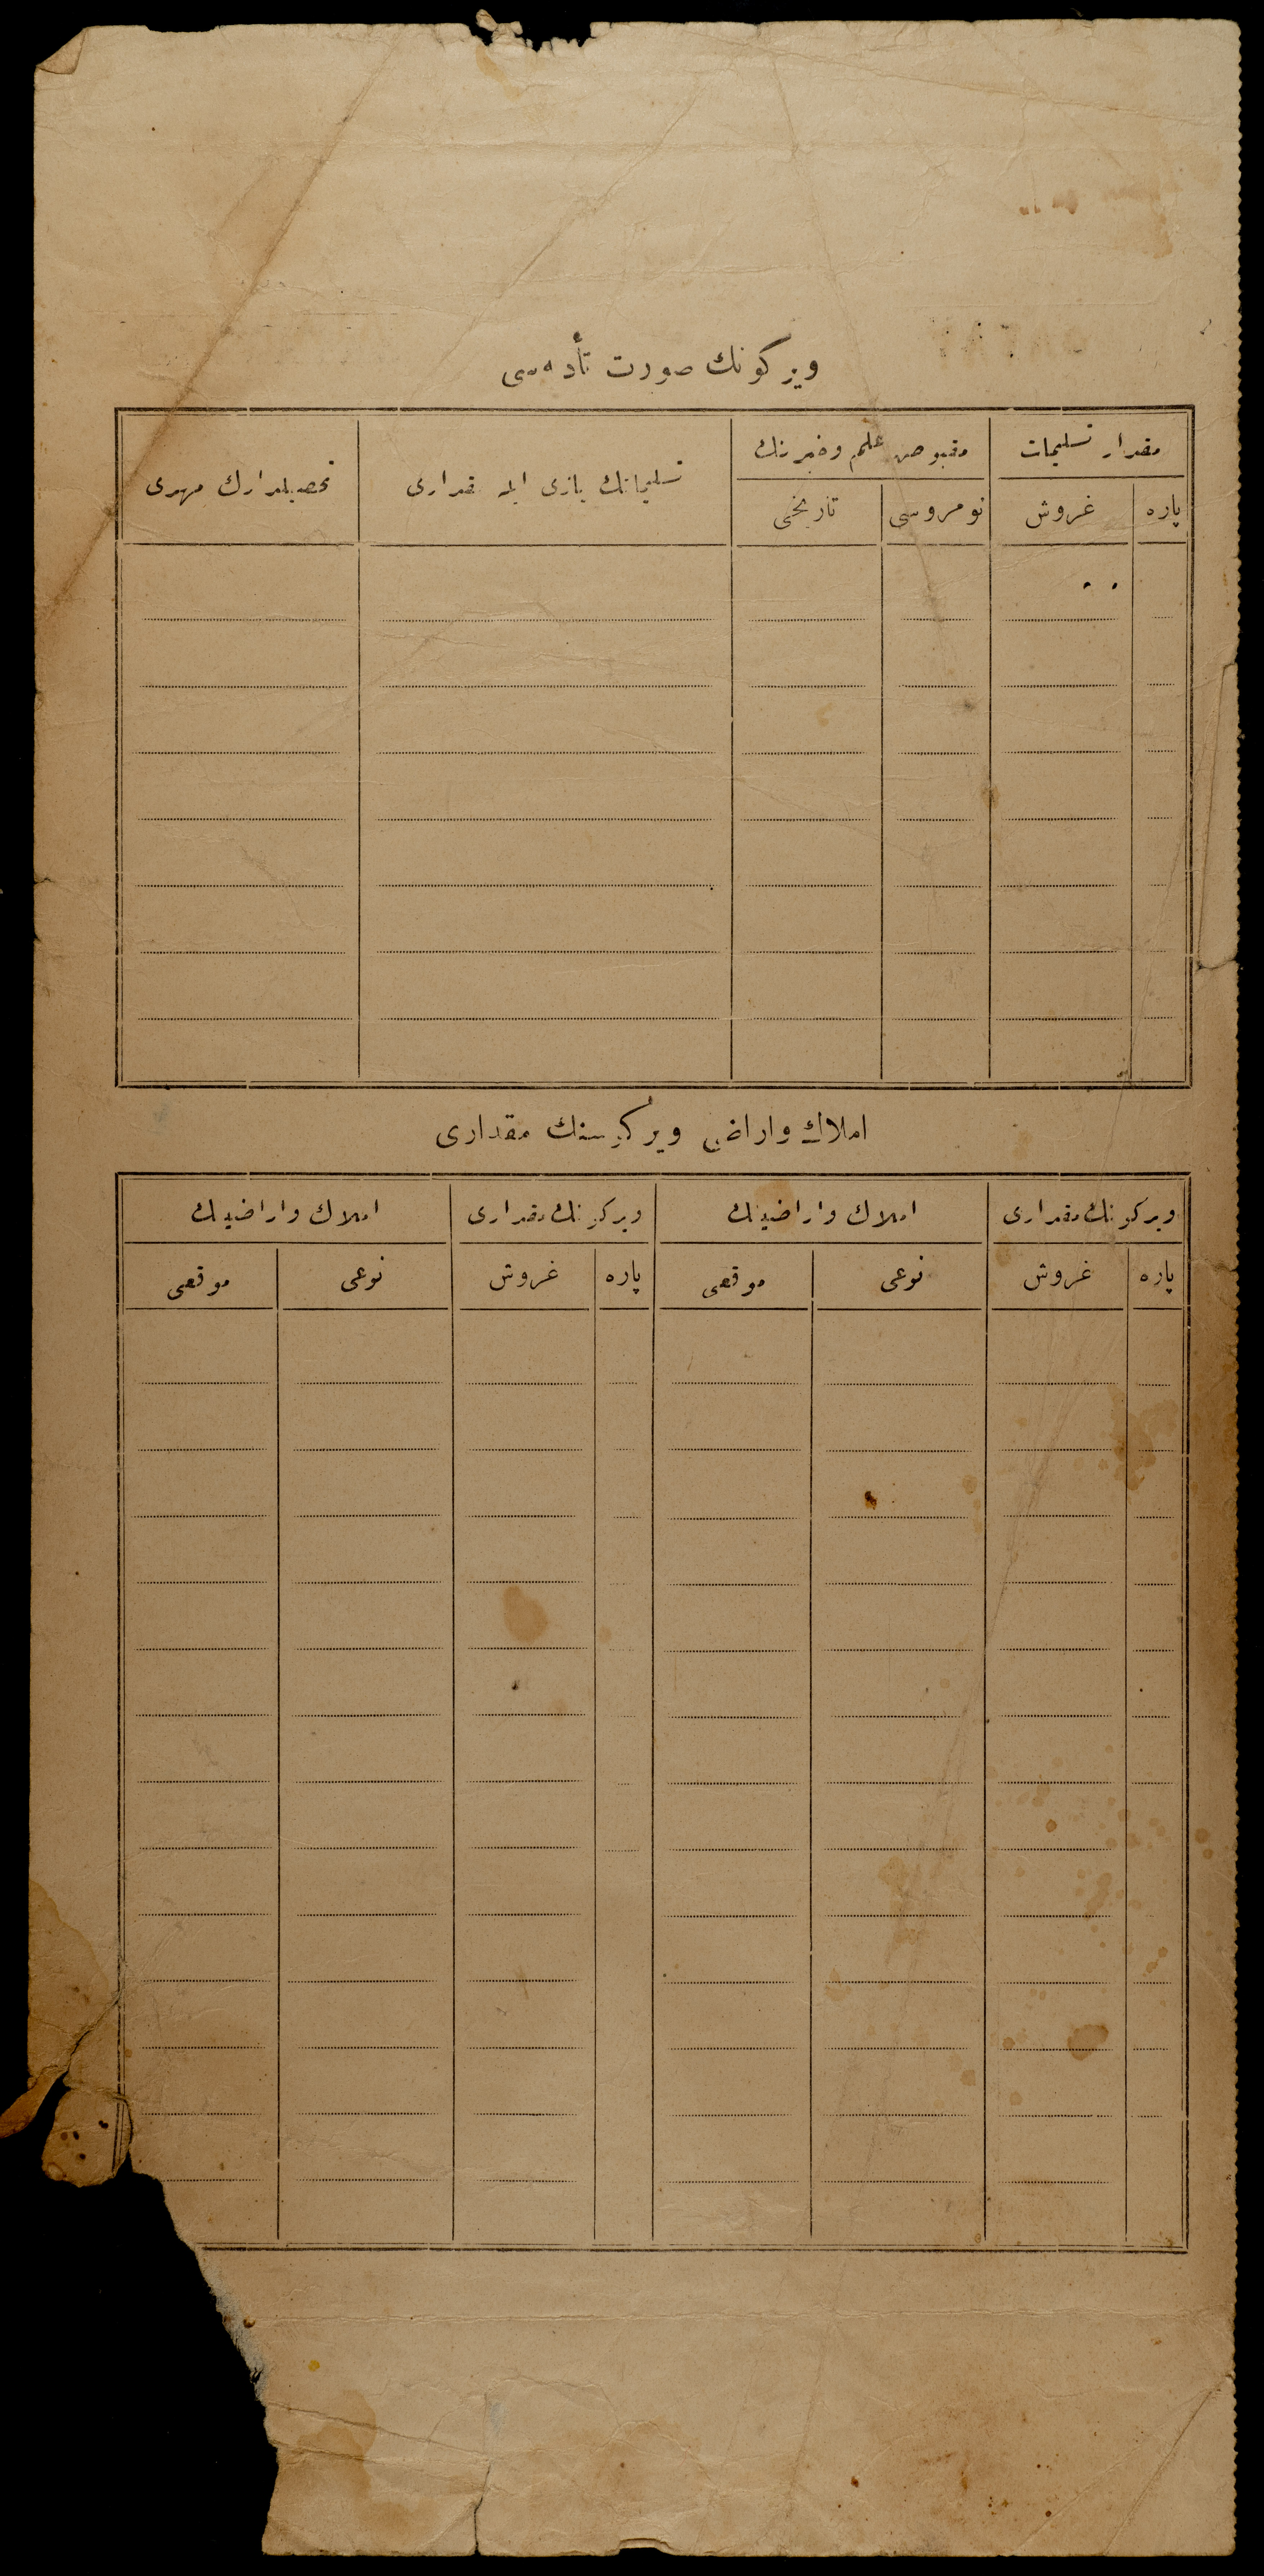 ویركونك صورت تأدیه‌سی
مقدار تسلیمات
مقبوض علم وخبرنك
تسلیماتك یازی ایله مقداری
تحصیلدارك مهری
پاره
غروش
نومروسی
تاریخی
املاك واراضی ویركیسنك مقداری
ویركونك مقداری
املاك واراضینك
ویركونك مقداری
املاك واراضینك
پاره
غروش
نوعی
موقعی
پاره
غروش
نوعی
موقعی